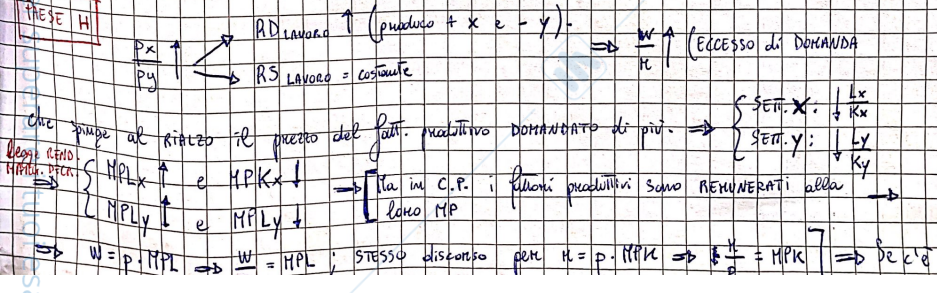 PAESE H
Px/Py ↑ → RD LAVORO ↑ (produco + x e - y).
→ RS LAVORO = costante
⇒ w/r ↑ (ECCESSO di DOMANDA
che spinge al RIALZO il prezzo del fatt. produttivo DOMANDATO di più. ⇒ { SETT. X: ↓ Lx/Kx
SETT. Y: ↓ Ly/Ky
legge REND. MARG. DECR.
⇒ { MPLx ↑ e MPKx ↓
MPLy ↑ e MPLy ↓
⇒ [Ma in C.P. i fattori produttivi sono REMUNERATI alla →
loro MP
⇒ W = p · MPL ⇒ W/p = MPL ; STESSO discorso per r = p · MPK ⇒ r/p = MPK] ⇒ Se c'è